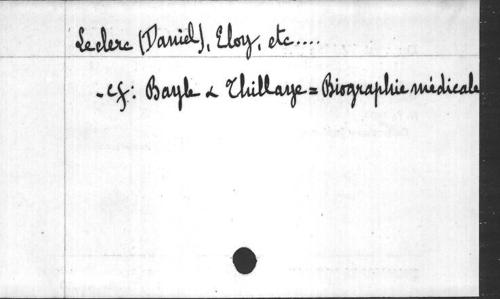 Leclerc (Daniel), Eloy, etc....
- cf: Bayle & Thillaye = Biographie médicale